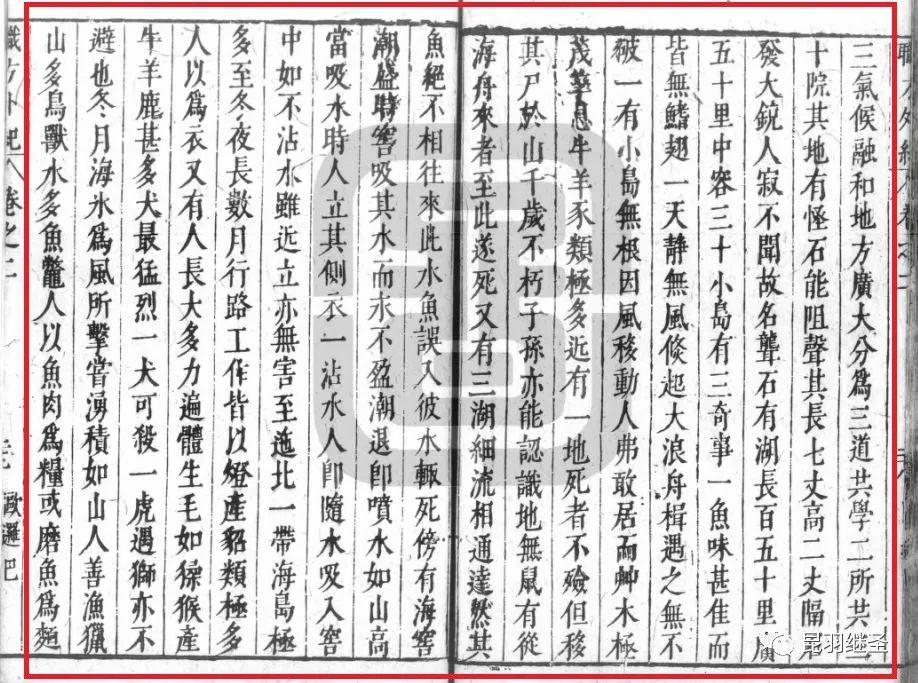 三氣候融和地方廣大分爲三道共學二所共
十院其地有怪石能阻聲其長七丈高二丈隔
發大銃人寂不聞故名聾石有湖長百五十里廣
五十里中容三十小島有三奇事一魚味甚佳而
皆無鰭翅一天靜無風倐起大浪舟楫遇之無不
破一有小島無根因風移動人弗敢居而艸木極
茂華息牛羊豕類極多近有一地死者不殮但移
其尸於山千歲不朽子孫亦能認識地無鼠有從
海舟來者至此遂死又有三湖細流相通達然其
魚絕不相往來此水魚誤入彼水輒死傍有海窖
潮盛時窖吸其水而永不盈潮退卽噴水如山高
當吸水時人立其側衣一沾水人卽隨水吸入窖
中如不沾水雖近立亦無害至迤北一帶海島極
多至冬夜長數月行路工作皆以燈產貂類極多
人以爲衣又有人長大多力遍體生毛如猱猴產
牛羊鹿甚多犬最猛烈一犬可殺一虎遇獅亦不
避也冬月海氷爲風所擊嘗湧積如山人善漁獵
山多鳥獸水多魚鼈人以魚肉爲糧或磨魚爲麵
職方外紀 卷之二 歐邏巴
昆羽继圣